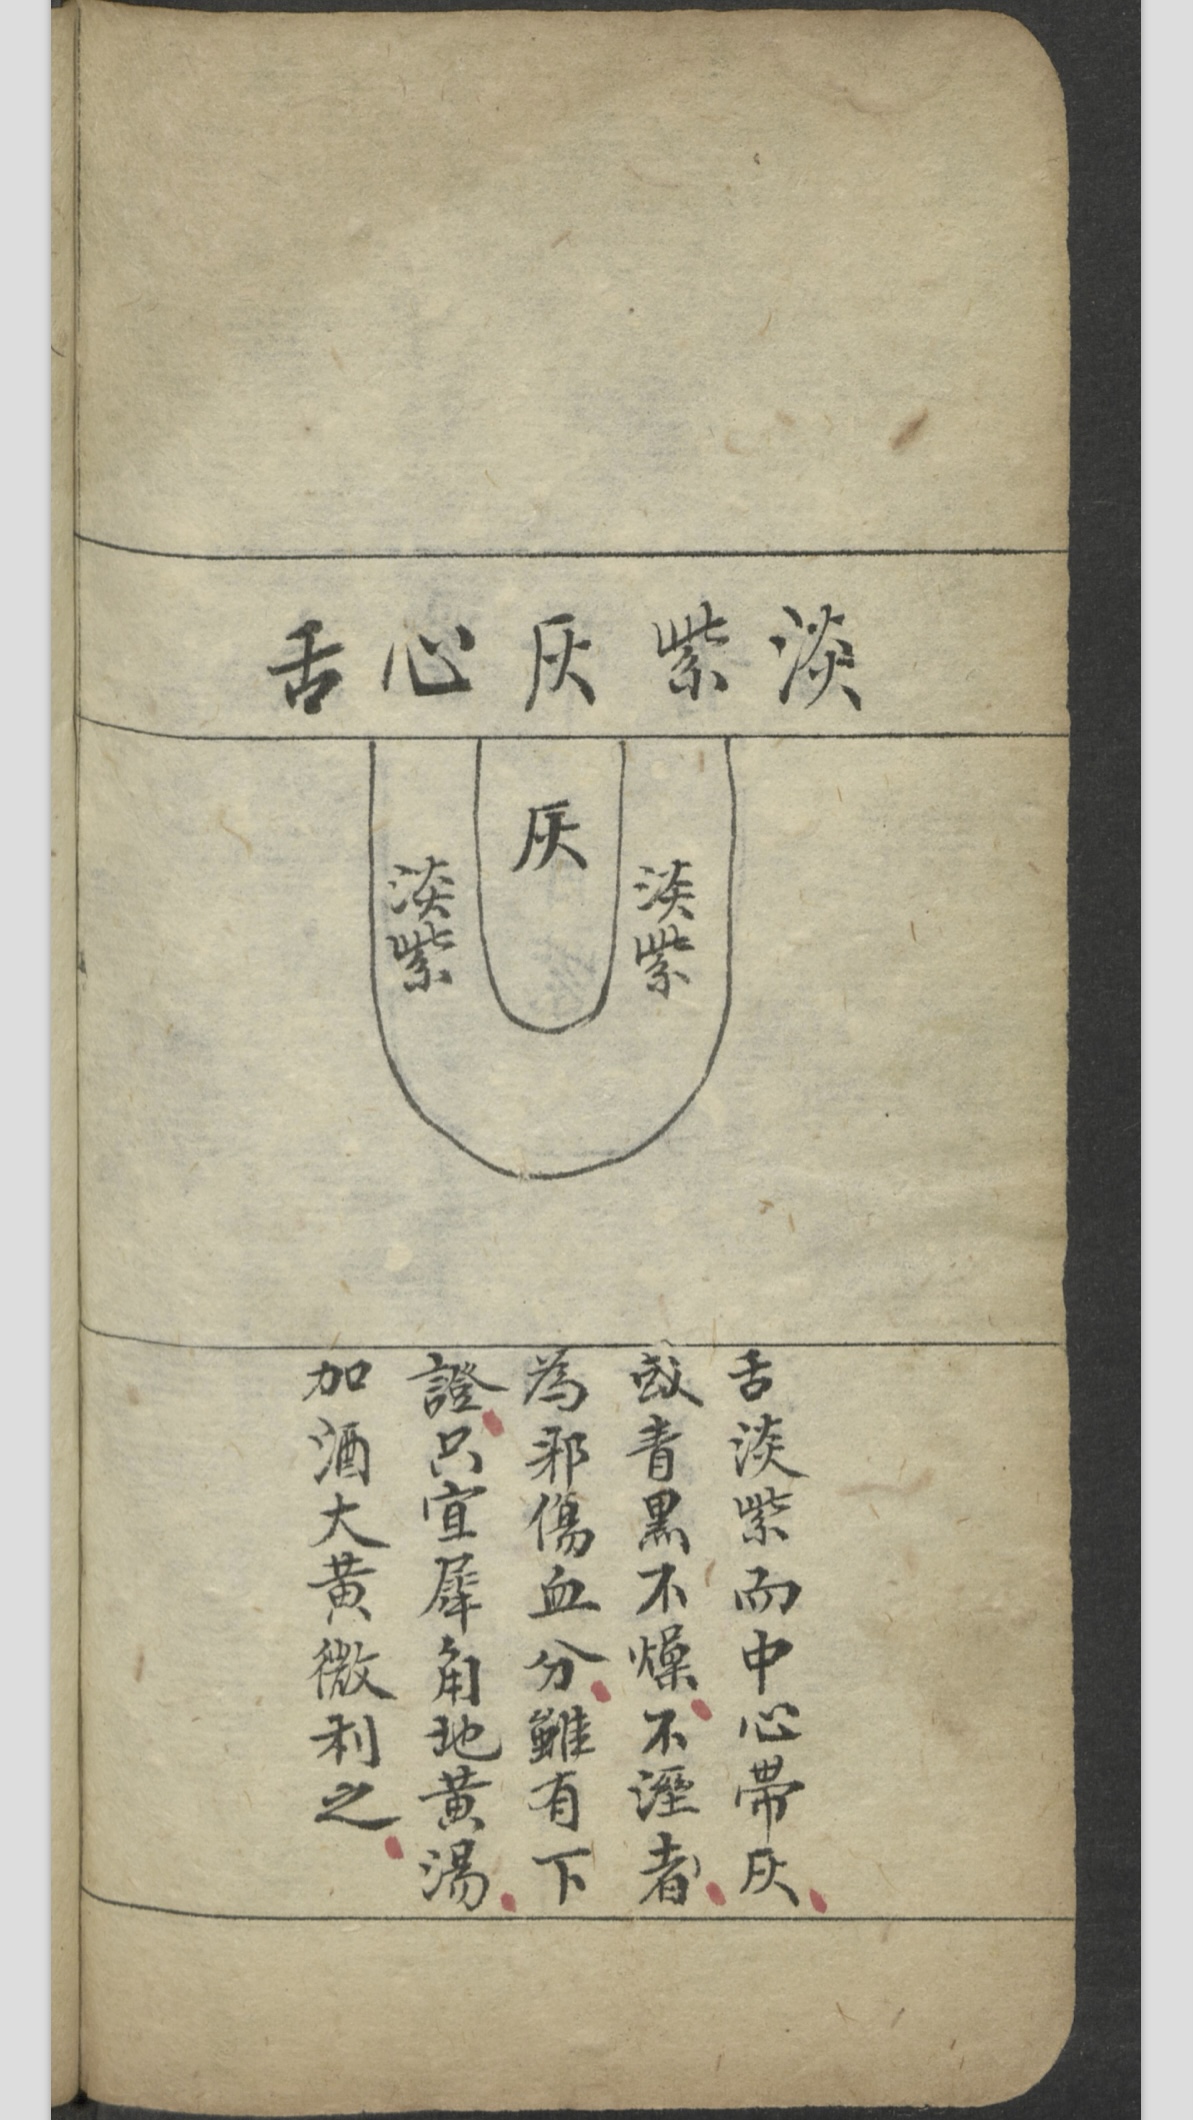 淡紫灰心舌
灰
淡紫
淡紫
舌淡紫而中心帶灰
或青黑不燥不溼者
為邪傷血分雖有下
證只宜犀角地黃湯
加酒大黃微利之